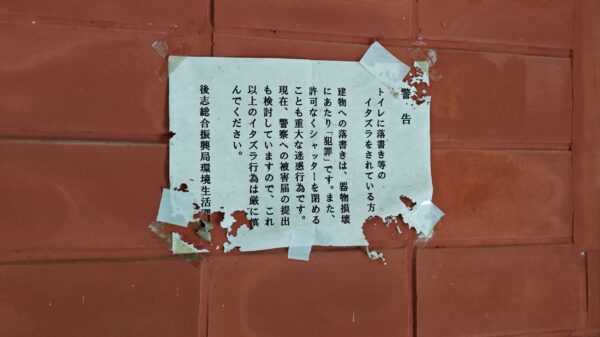 警告
トイレに落書き等の
イタズラをされている方
建物への落書きは、器物損壊
にあたり「犯罪」です。また、
許可なくシャッターを閉める
ことも重大な迷惑行為です。
現在、警察への被害届の提出
も検討していますので、これ
以上のイタズラ行為は厳に慎
んでください。
後志総合振興局環境生活